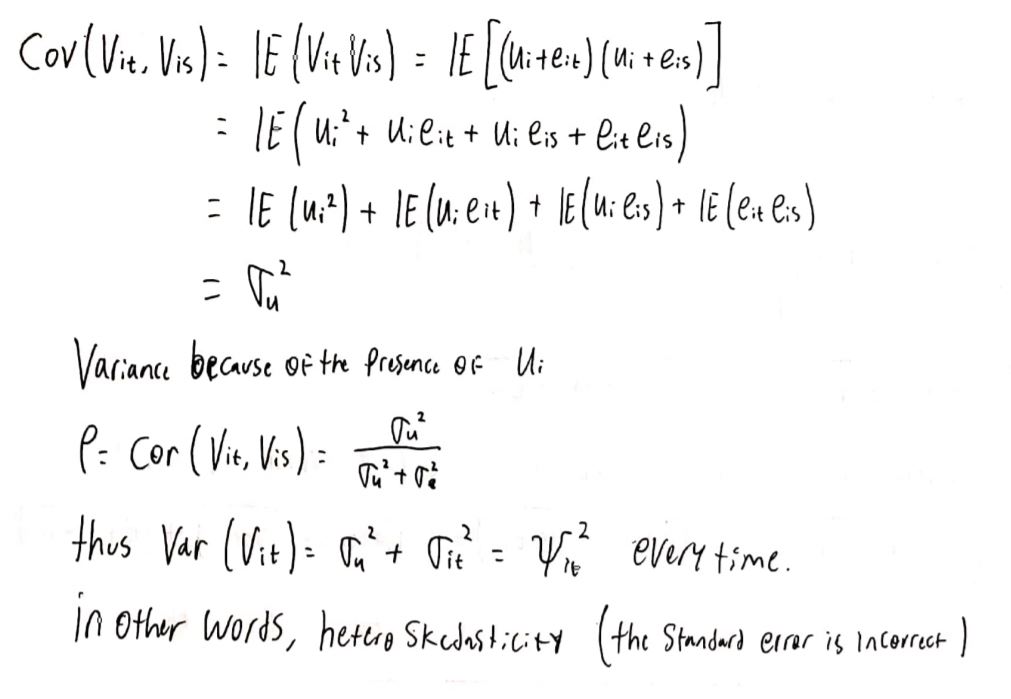 Cov(Vit, Vis) = IE(Vit Vis) = IE[(ui+eit)(ui+eis)]
= IE(ui² + ui eit + ui eis + eit eis)
= IE(ui²) + IE(ui eit) + IE(ui eis) + IE(eit eis)
= σu²
Variance because of the Presence of Ui
ρ = Cor(Vit, Vis) = σu² / (σu² + σe²)
thus Var(Vit) = σu² + σit² = ψit² every time.
in other words, heteroskedasticity (the Standard error is incorrect)